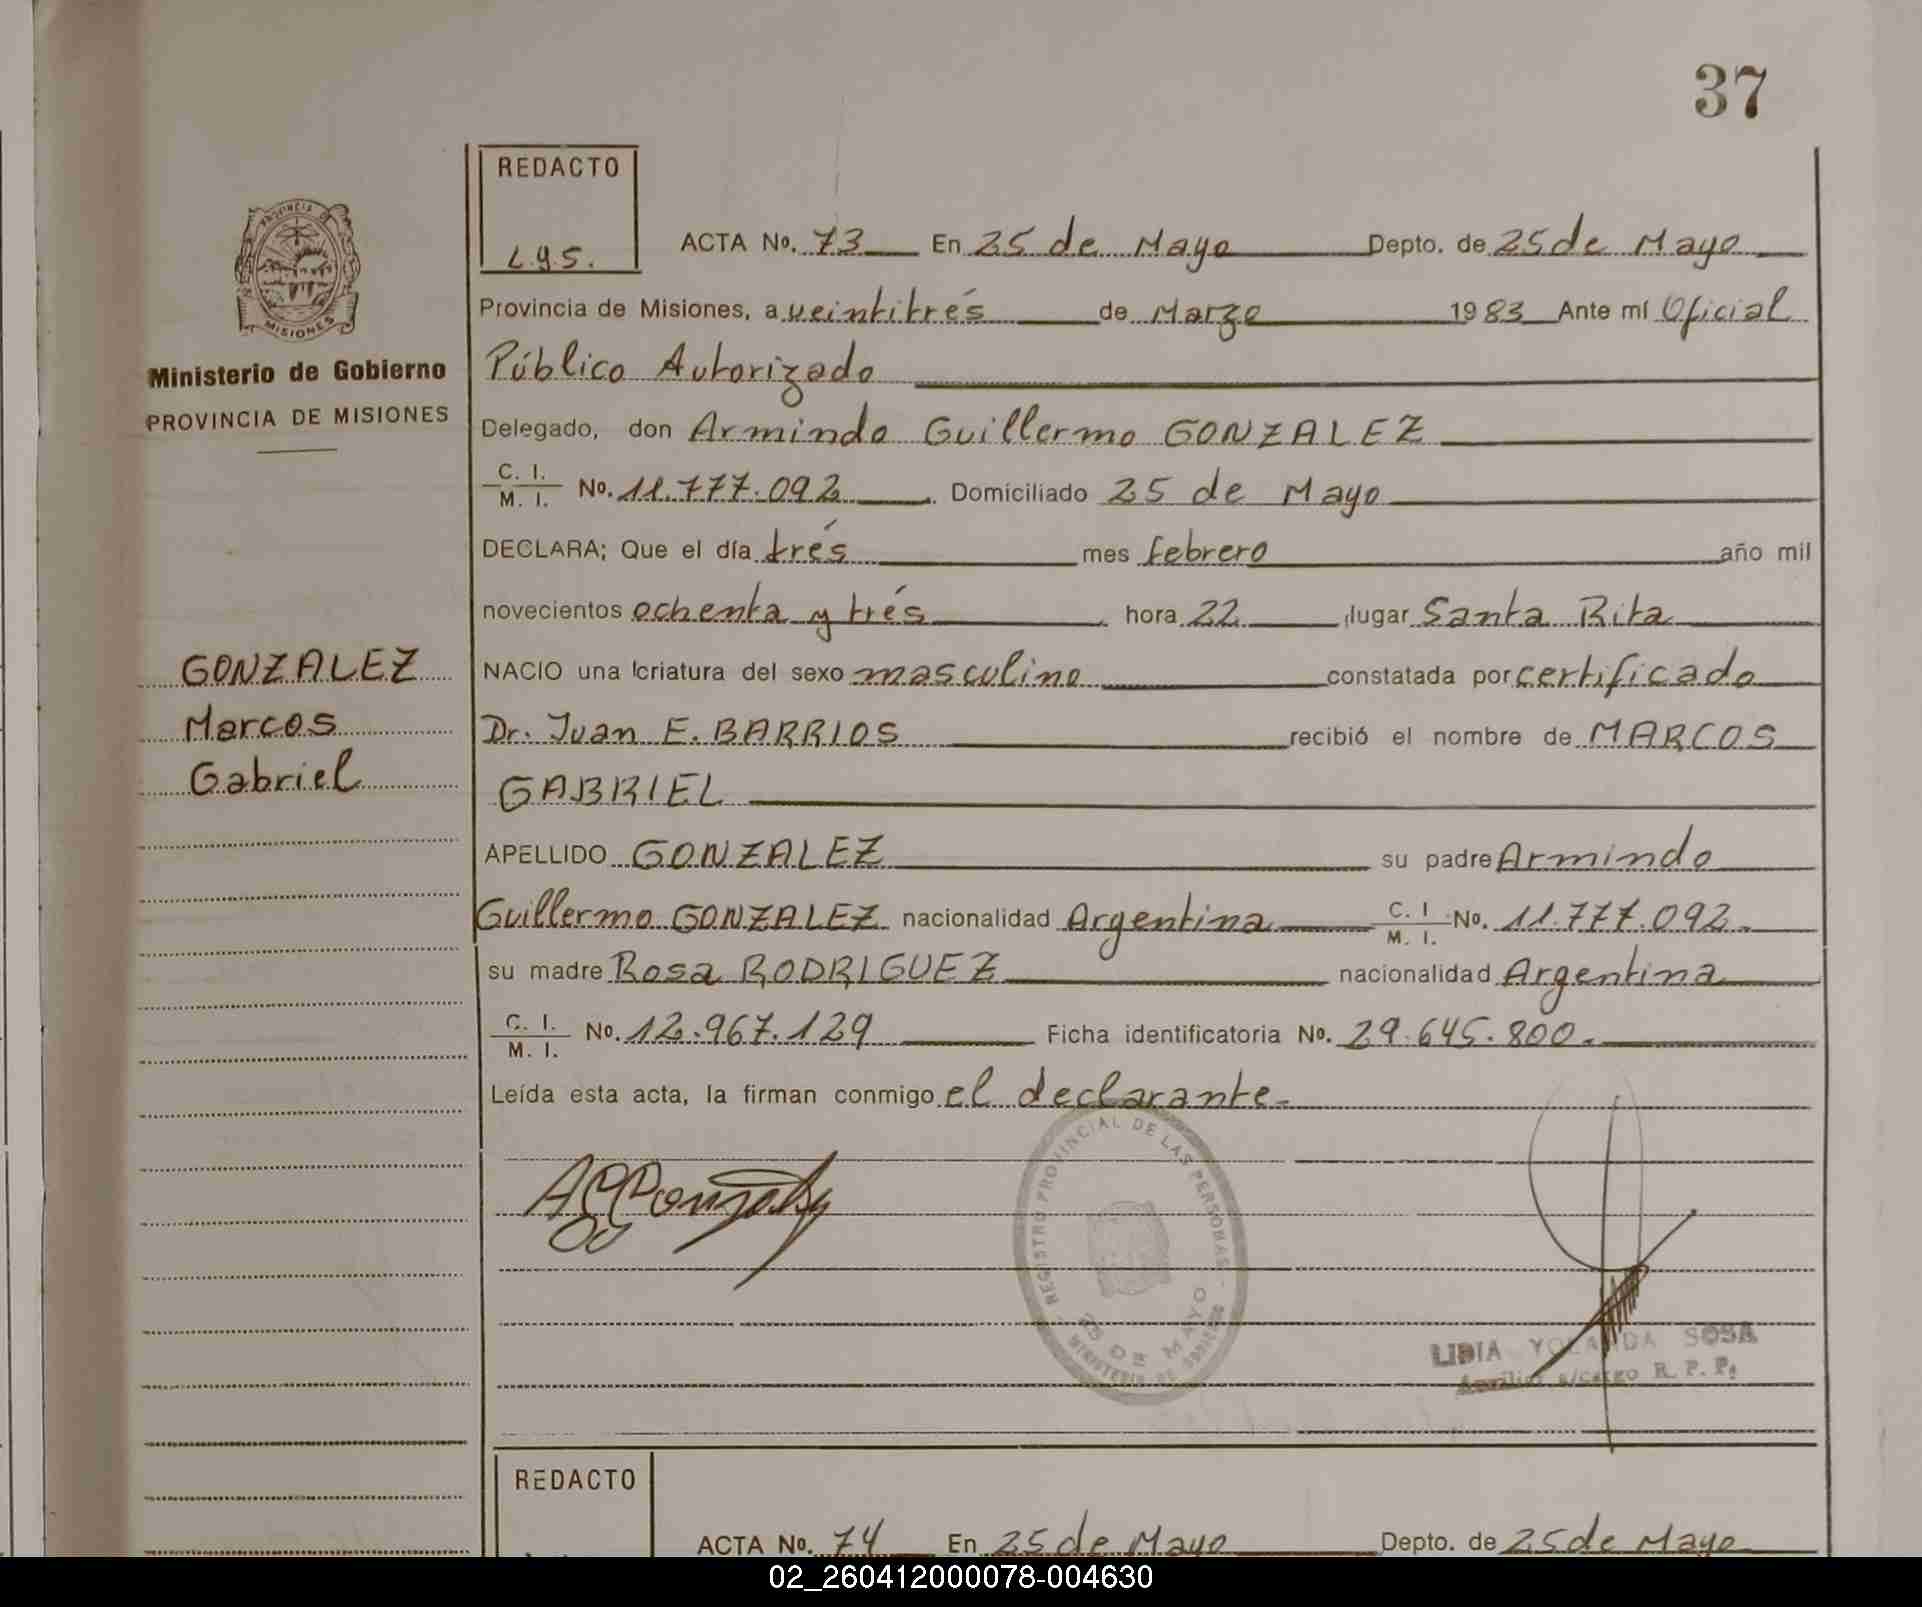 37
REDACTO
L.Y.S.
ACTA No. 73 En 25 de Mayo Depto. de 25 de Mayo
PROVINCIA DE
MISIONES
Provincia de Misiones, a veintitrés de Marzo 1983 Ante mí Oficial
Ministerio de Gobierno
PROVINCIA DE MISIONES
Público Autorizado
Delegado, don Armindo Guillermo GONZALEZ
C. I.
M. I. No. 11.777.092 Domiciliado 25 de Mayo
DECLARA; Que el día trés mes febrero año mil
novecientos ochenta y trés hora 22 lugar Santa Rita
GONZALEZ
Marcos
Gabriel
NACIO una criatura del sexo masculino constatada por certificado
Dr. Juan E. BARRIOS recibió el nombre de MARCOS
GABRIEL
APELLIDO GONZALEZ su padre Armindo
Guillermo GONZALEZ nacionalidad Argentina C. I M. I. No. 11.777.092.
su madre Rosa RODRIGUEZ nacionalidad Argentina
C. I.
M. I. No. 12.967.129 Ficha identificatoria No. 29.645.800.
Leída esta acta, la firman conmigo el declarante.
REGISTRO PROVINCIAL DE LAS PERSONAS
25 DE MAYO
MINISTERIO DE GOBIERNO
LIDIA YOLANDA SOSA
Auxiliar a/cargo R. P. P.
REDACTO
ACTA No. 74 En 25 de Mayo Depto. de 25 de Mayo
02_260412000078-004630